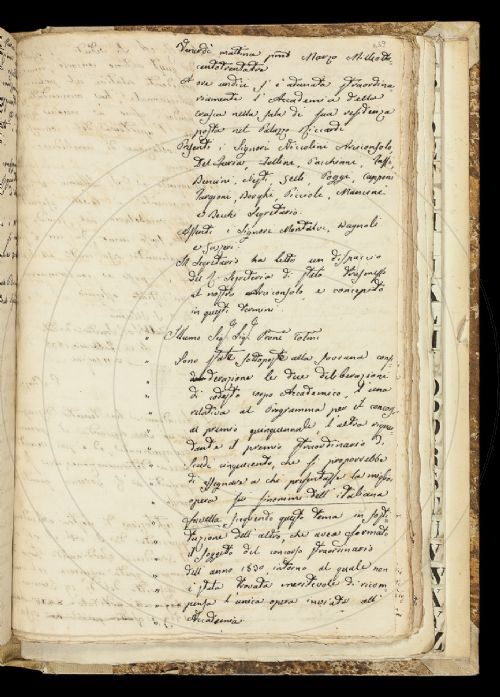 Venerdì mattina primo Marzo Milleotto
centotrentatre
A ore undici s'è adunata straordina
riamente l'Accademia della
Crusca nella sala di sua residenza
posta nel Palazzo Riccardi
Presenti i Signori Niccolini Arciconsolo
Del Furia, Follini, Pacchiani,
Bencini, Sette Poggi, Capponi
Targioni, Borghi, Picciole, Mancini
e Becchi Segretario.
Assenti i Signori Montalvi, Bagnoli
e
Il Segretario ha letto un dispaccio
del R. Segreteria di Stato trasmesso
al nostro Arciconsolo, e concepito
in questi termini.
Illumo Sig. Sig. Prone Colmo
Sono state sottoposte alla sovrana con
siderazione le due deliberazioni
di codesto corpo Accademico, l'una
relativa al Programma per il concorso
al premio quinquennale, l'altra riguar
dante il premio straordinario di
Scudi cinquecento, che si proporrebbe
di assegnare a chi presentasse la miglior
opera sui sinonimi dell'italiana
favella scegliendo questo tema in sosti
tuzione dell'altro, che avea formato
il soggetto del concorso straordinario
dell'anno 1830, intorno al quale non
è stata trovata meritevole di ricom
pensa l'unica opera inviata all'
Accademia